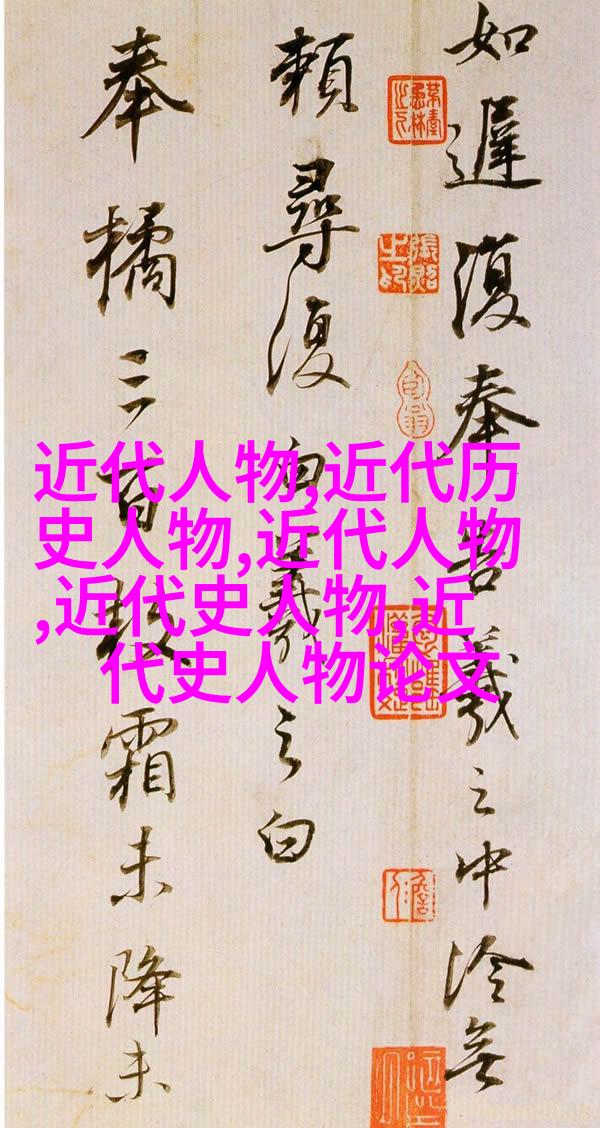 如遲復奉告羲之中冷無
賴尋復白羲之白
奉橘三百枚霜未降未
近代人物,近代历
史人物,近代人物
,近代史人物,近
代史人物论文